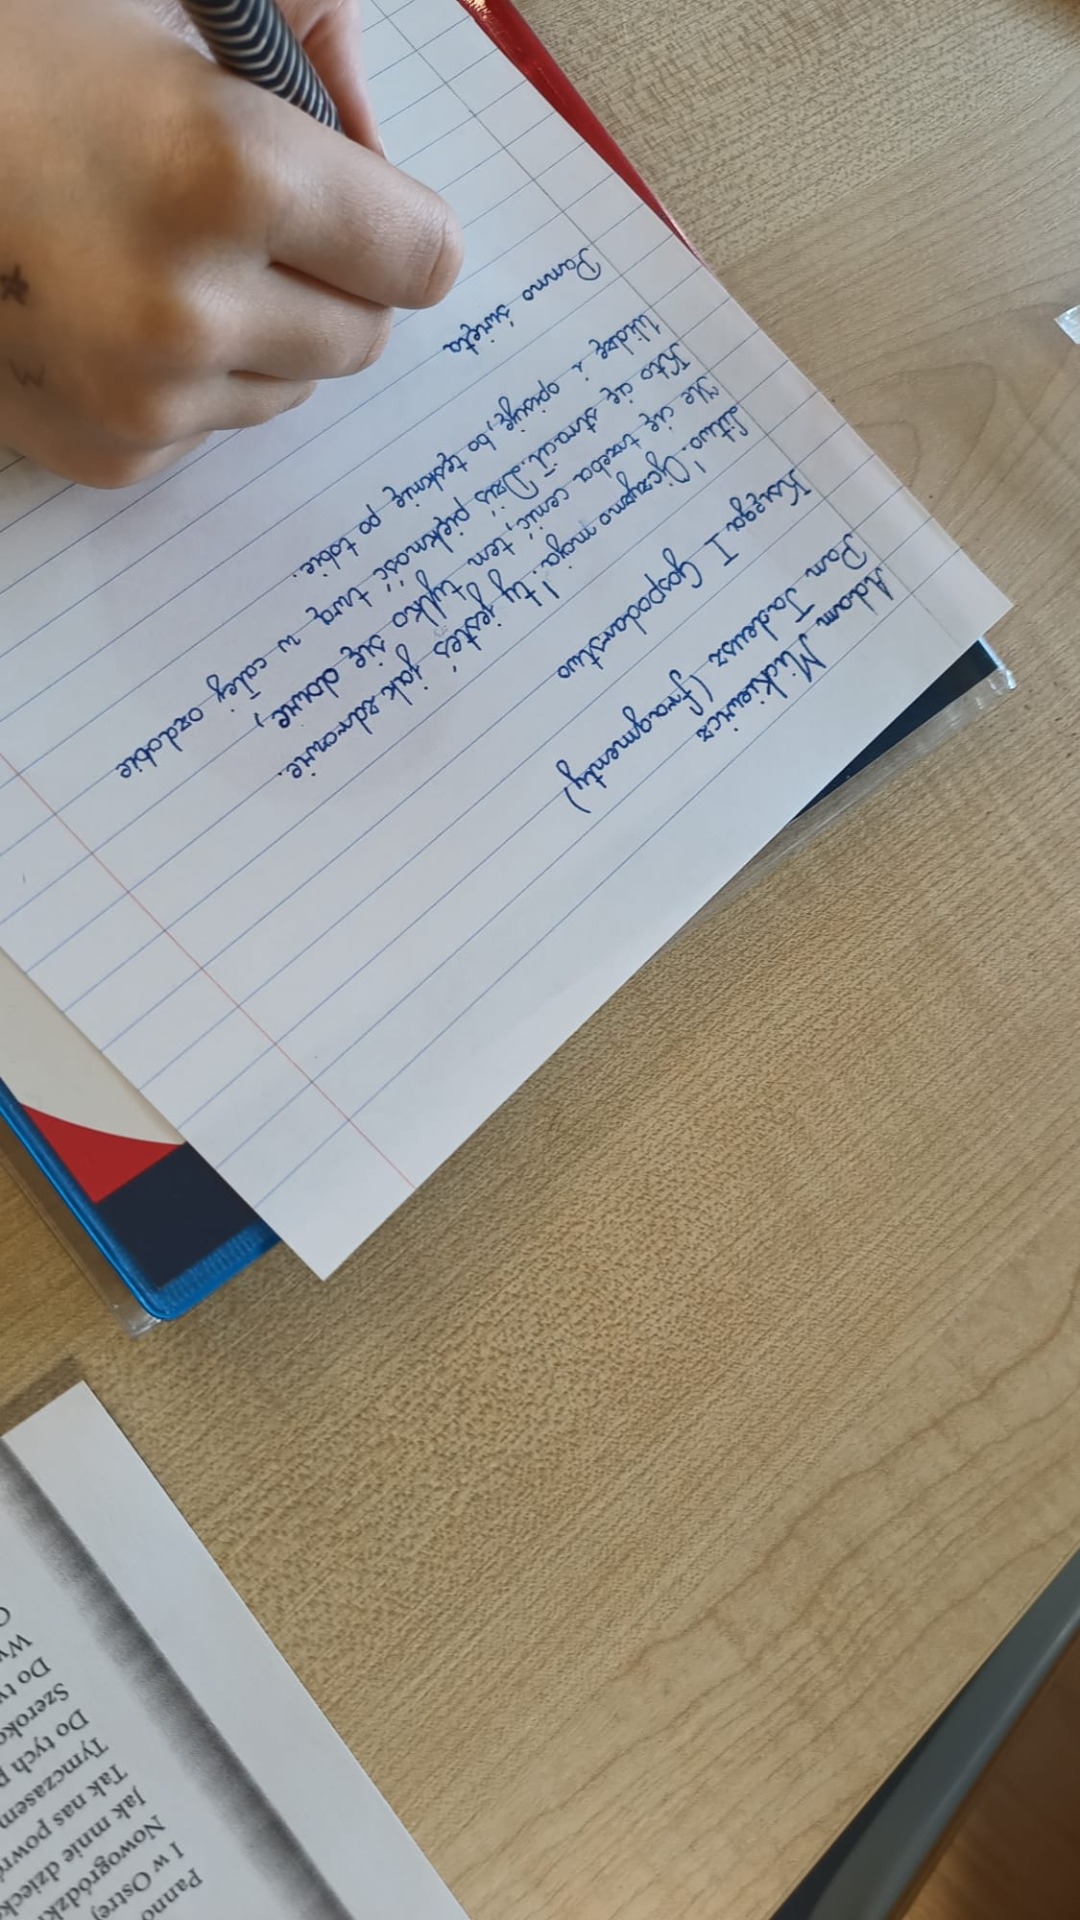 Adam Mickiewicz
Pan Tadeusz (fragmenty)
Księga I Gospodarstwo
Litwo! Ojczyzno moja! ty jesteś jak zdrowie.
Ile cię trzeba cenić, ten tylko się dowie,
Kto cię stracił. Dziś piękność twą w całej ozdobie
Widzę i opisuję, bo tęsknię po tobie.
Panno święta
Panno
I w Ostrej
Nowogródzki
Jak mnie dziecko
Tak nas powró
Tymczasem
Do tych p
Szeroko
Do ty
Wy